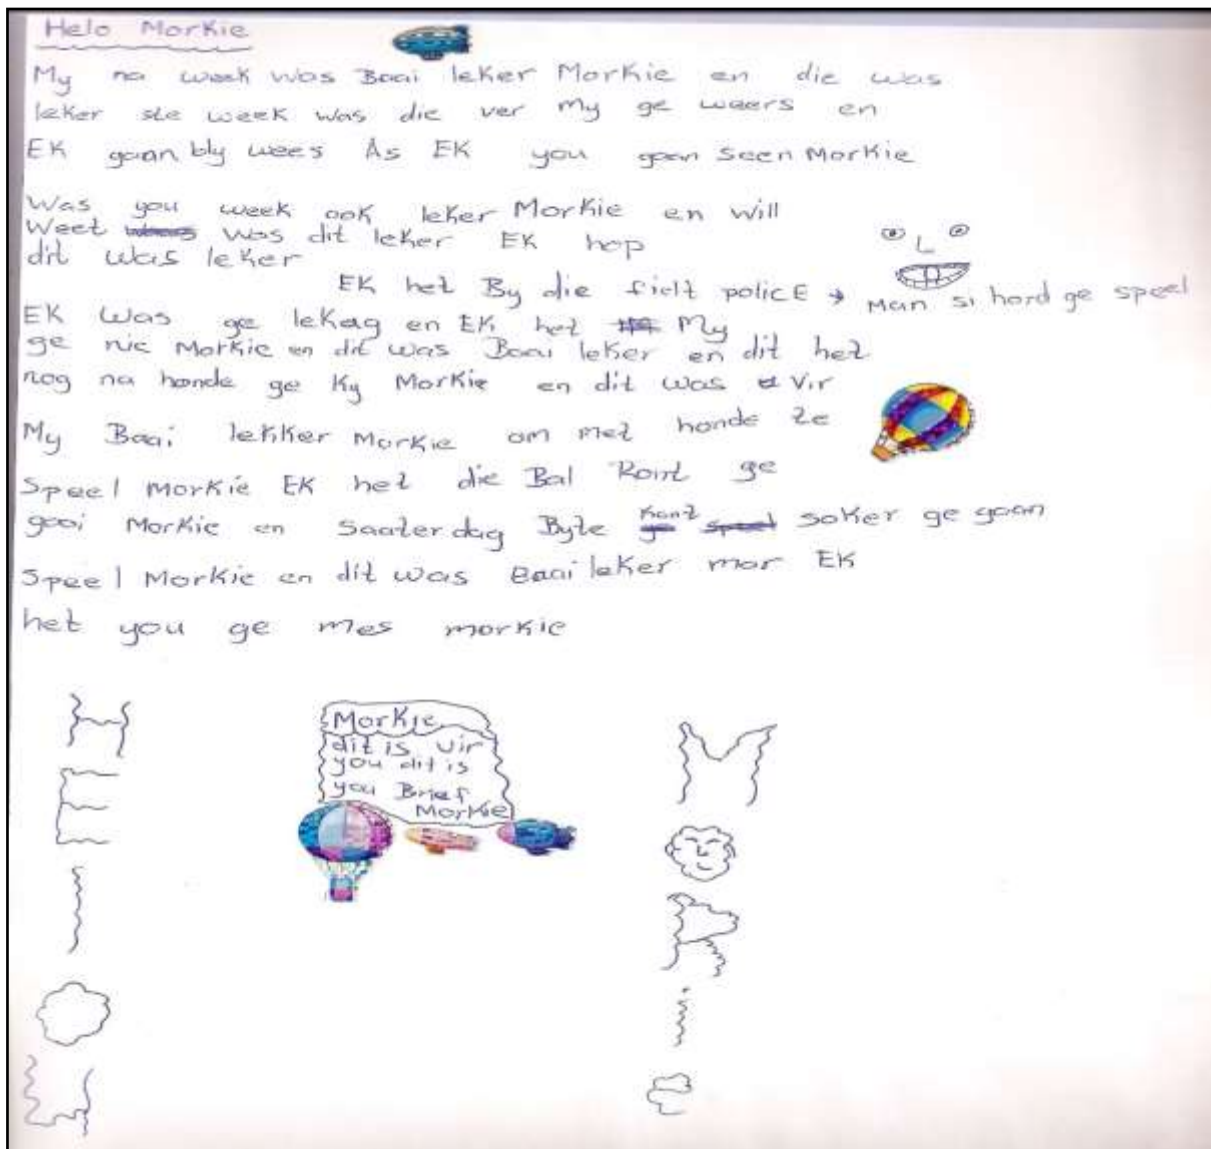 Helo Morkie
My na week was Baai leker Morkie en die was
leker ste week was die ver My ge waers en
EK gaan bly wees As EK you gaan Seen Morkie
Was you week ook leker Morkie en will
Weet was dit leker EK hop
dit was leker
EK het By die fielt policE → Man si hord ge speel
EK was ge lekag en EK het My
ge nie Morkie en dit was Baai leker en dit het
nog na honde ge Ky Morkie en dit was Vir
My Baai lekker Morkie om met honde te
Speel Morkie EK het die Bal Ront ge
gooi Morkie en Saaterdag Byte kant soker ge gaan
Speel Morkie en dit was Baai leker mar EK
het you ge mes morkie
Morkie
dit is vir
you dit is
you Brief
Morkie
H
E
l
O
M
R
i
e